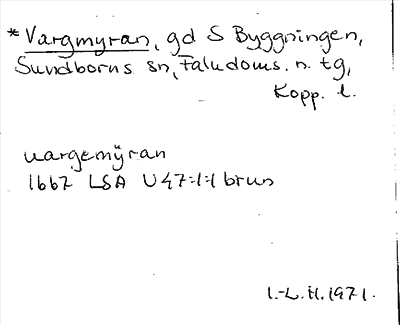 * Vargmyran, gd S Byggningen,
Sundborns sn, Faludoms. n. tg,
Kopp. l.
uargemÿran
1667 LSA U47:1:1 brun
I.-L.H. 1971.